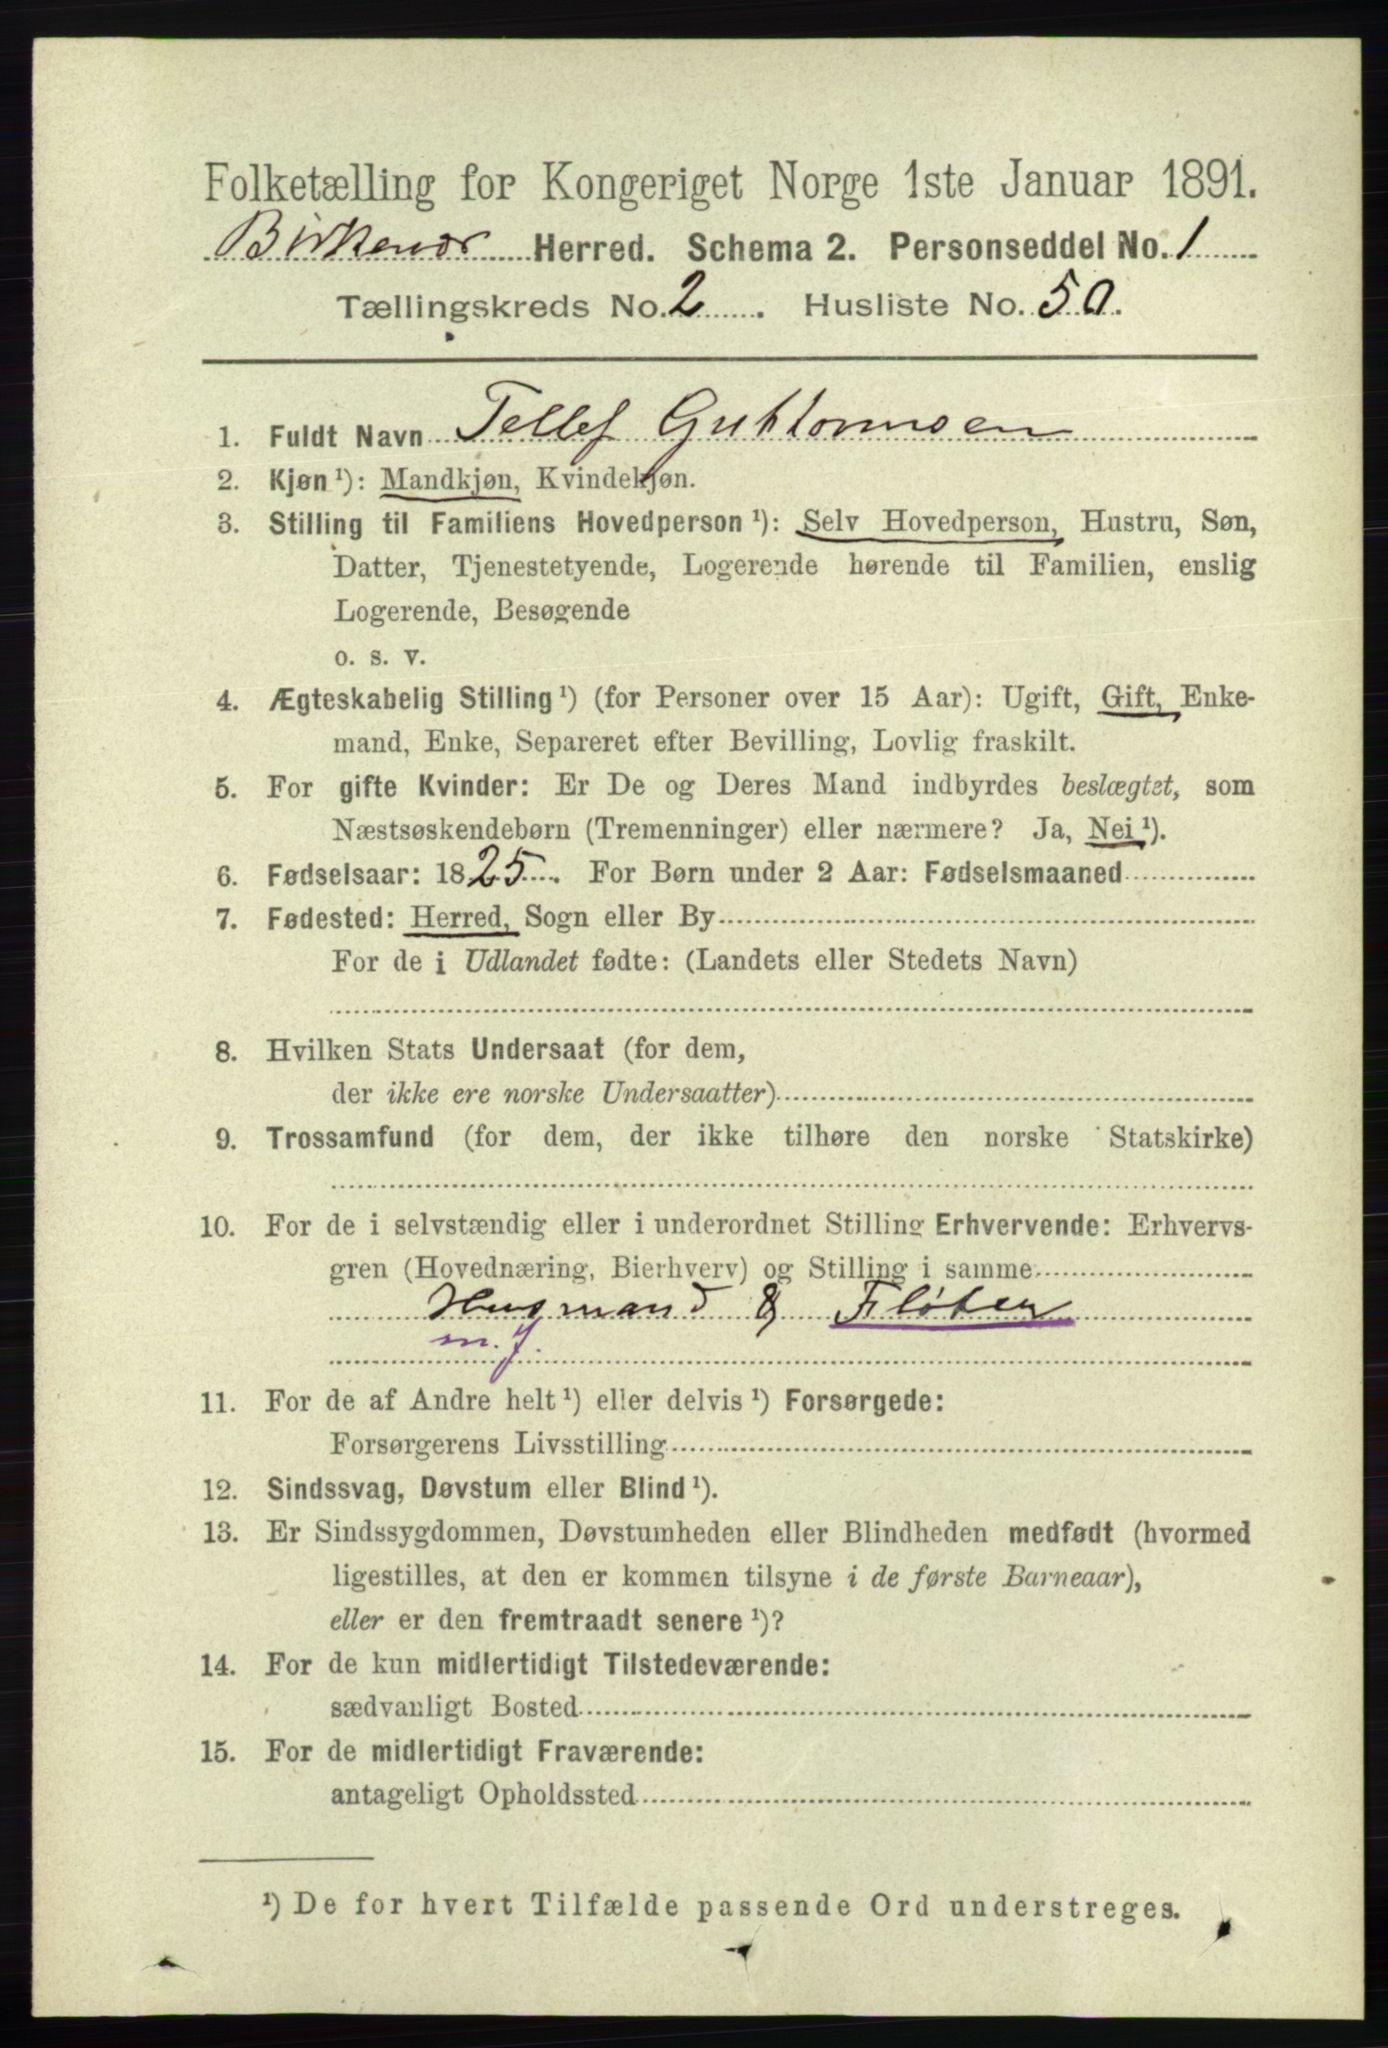 Folketælling for Kongeriget Norge 1ste Januar 1891.
Birkenes Herred. Schema 2. Personseddel No. 1
Tællingskreds No. 2. Husliste No. 50.
1. Fuldt Navn Tellef Guttormsen
2. Kjøn ¹): Mandkjøn, Kvindekjøn.
3. Stilling til Familiens Hovedperson ¹): Selv Hovedperson, Hustru, Søn,
Datter, Tjenestetyende, Logerende hørende til Familien, enslig
Logerende, Besøgende
o. s. v.
4. Ægteskabelig Stilling ¹) (for Personer over 15 Aar): Ugift, Gift, Enke-
mand, Enke, Separeret efter Bevilling, Lovlig fraskilt.
5. For gifte Kvinder: Er De og Deres Mand indbyrdes beslægtet, som
Næstsøskendebørn (Tremenninger) eller nærmere? Ja, Nei ¹).
6. Fødselsaar: 1825. For Børn under 2 Aar: Fødselsmaaned
7. Fødested: Herred, Sogn eller By
For de i Udlandet fødte: (Landets eller Stedets Navn)
8. Hvilken Stats Undersaat (for dem,
der ikke ere norske Undersaatter)
9. Trossamfund (for dem, der ikke tilhøre den norske Statskirke)
10. For de i selvstændig eller i underordnet Stilling Erhvervende: Erhvervs-
gren (Hovednæring, Bierhverv) og Stilling i samme
Husmand & Fløter
m. J.
11. For de af Andre helt ¹) eller delvis ¹) Forsørgede:
Forsørgerens Livsstilling
12. Sindssvag, Døvstum eller Blind ¹).
13. Er Sindssygdommen, Døvstumheden eller Blindheden medfødt (hvormed
ligestilles, at den er kommen tilsyne i de første Barneaar),
eller er den fremtraadt senere ¹)?
14. For de kun midlertidigt Tilstedeværende:
sædvanligt Bosted
15. For de midlertidigt Fraværende:
antageligt Opholdssted
¹) De for hvert Tilfælde passende Ord understreges.